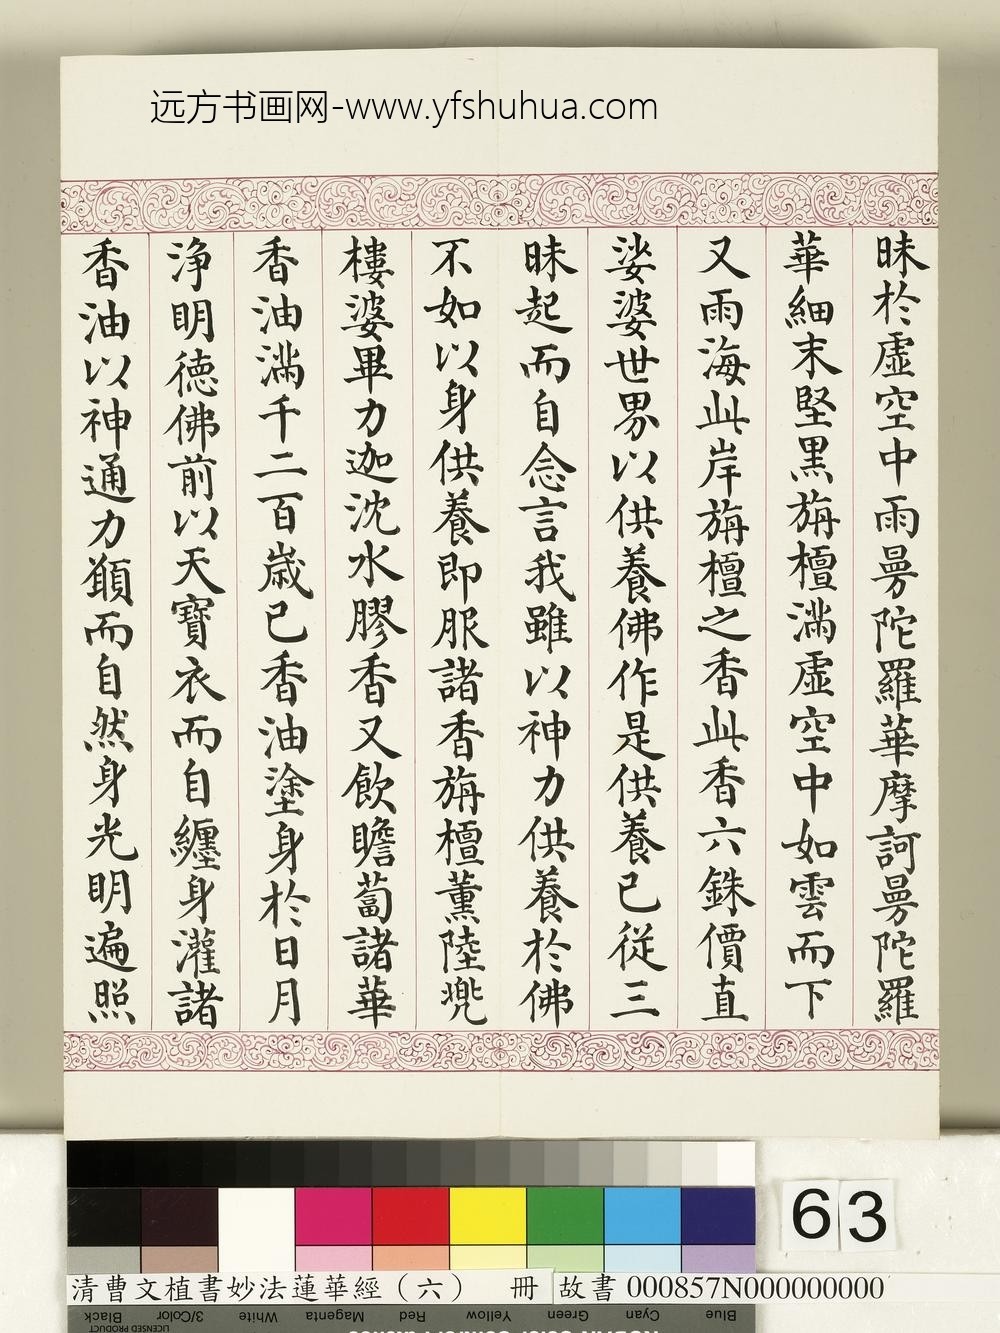 远方书画网-www.yfshuhua.com
昧於虛空中雨曼陀羅華摩訶曼陀羅
華細末堅黑旃檀滿虛空中如雲而下
又雨海此岸旃檀之香此香六銖價直
娑婆世界以供養佛作是供養已從三
昧起而自念言我雖以神力供養於佛
不如以身供養即服諸香旃檀薰陸兜
樓婆畢力迦沈水膠香又飲瞻蔔諸華
香油滿千二百歲已香油塗身於日月
淨明德佛前以天寶衣而自纏身灌諸
香油以神通力願而自然身光明遍照
63
清曹文植書妙法蓮華經（六） 冊 故書 000857N000000000
Black 3/Color White Magenta Red Yellow Green Cyan Blue
LICENSED PRODUCT